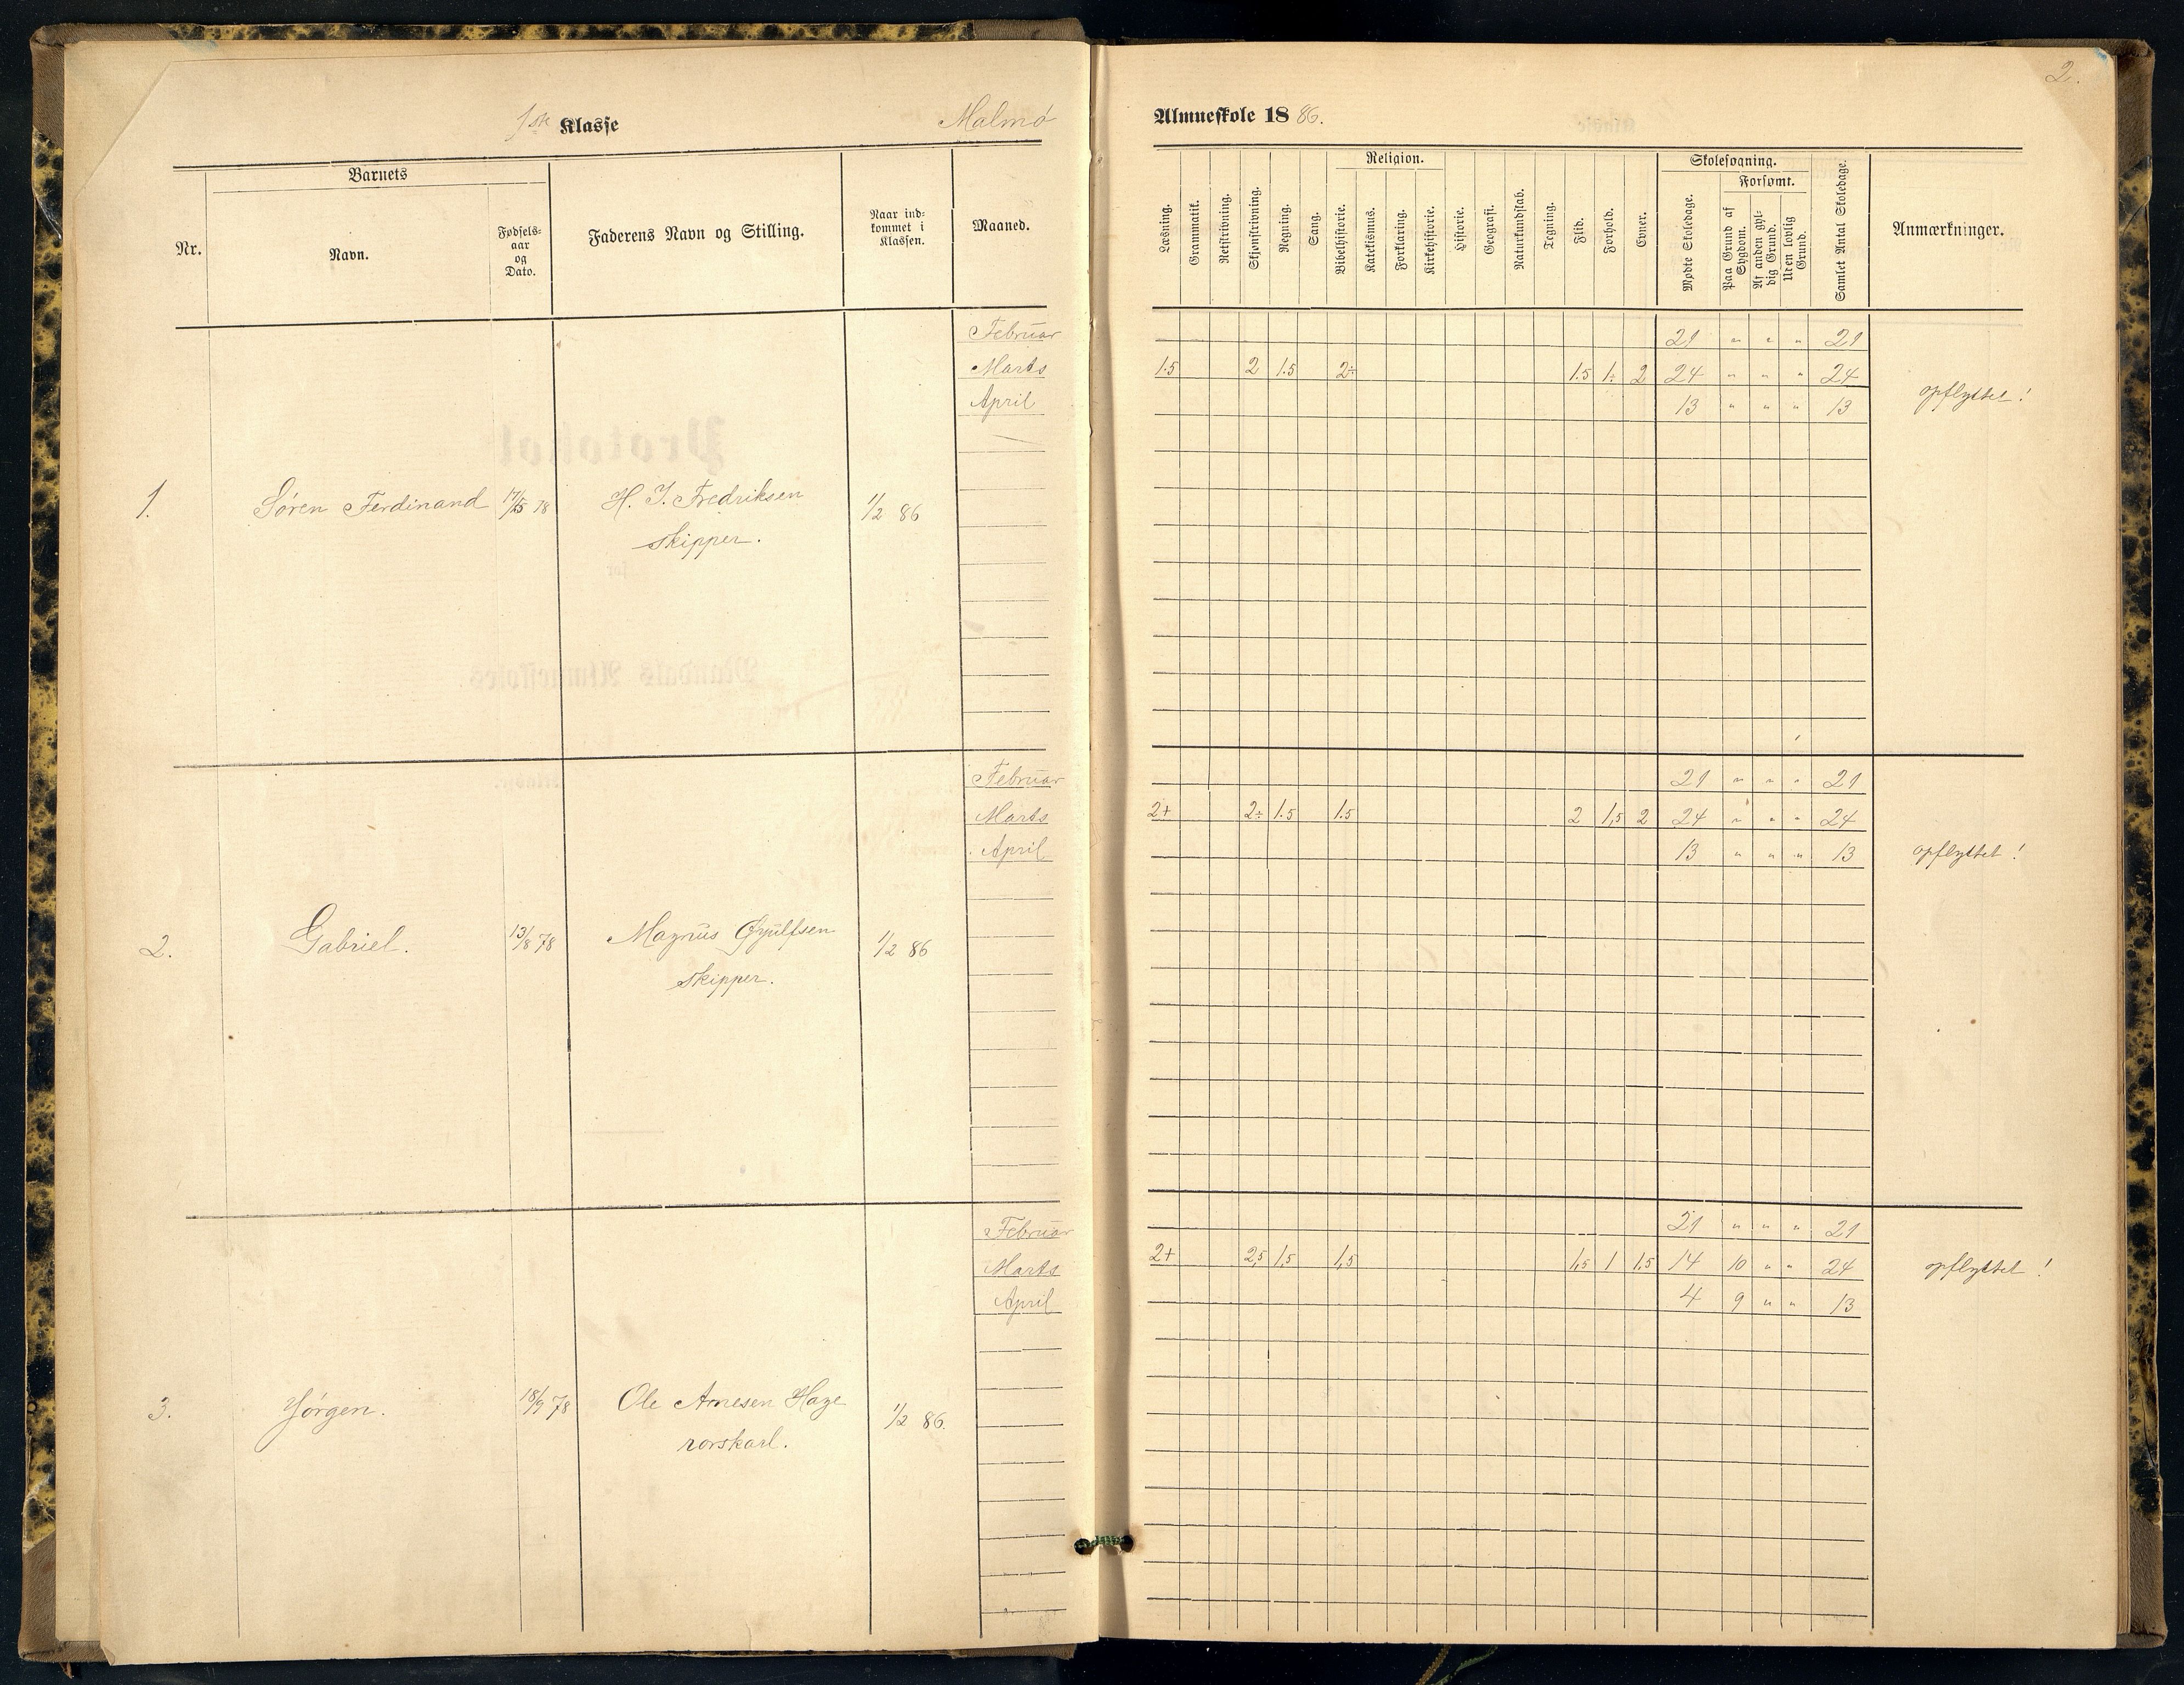 2.
1ste Klasse Malmø Almueskole 1886.
Nr. Barnets Navn. Fødsels-aar og Dato. Faderens Navn og Stilling. Naar ind-kommet i Klassen. Maaned. Læsning. Grammatik. Retskrivning. Skjønskrivning. Regning. Sang. Religion. Bibelhistorie. Katekismus. Forklaring. Kirkehistorie. Historie. Geografi. Naturkundskab. Tegning. Flid. Forhold. Evner. Skolesøgning. Mødte Skoledage. Forsømt. Paa Grund af Sygdom. Af anden gyl-dig Grund. Uden lovlig Grund. Samlet Antal Skoledage. Anmærkninger.
Februar 21 " " " 21
Marts 1.5 2 1.5 2÷ 1.5 1÷ 2 24 " " " 24
April 13 " " " 13 opflyttet!
1. Søren Ferdinand 78 H. J. Fredriksen 1/2 86
skipper.
Februar 21 " " " 21
Marts 2+ 2÷ 1.5 1.5 2 1,5 2 24 " " " 24
April 13 " " " 13 opflyttet!
2. Gabriel. 13/8 78 Magnus 1/2 86
skipper.
Februar 21 " " " 21
Marts 2+ 2,5 1,5 1,5 1,5 1 1,5 14 10 " " 24 opflyttet!
April 4 9 " " 13
3. Jørgen. 18/9 78 Ole Arnesen Hage 1/2 86.
rorskarl.